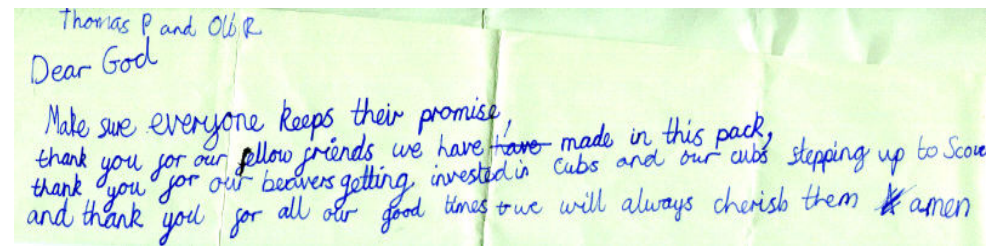 Thomas P and Olb R
Dear God
Make sure everyone keeps their promise,
thank you for our fellow friends we have have made in this pack,
thank you for our beavers getting invested in cubs and our cubs stepping up to Scou
and thank you for all our good times we will always cherish them amen